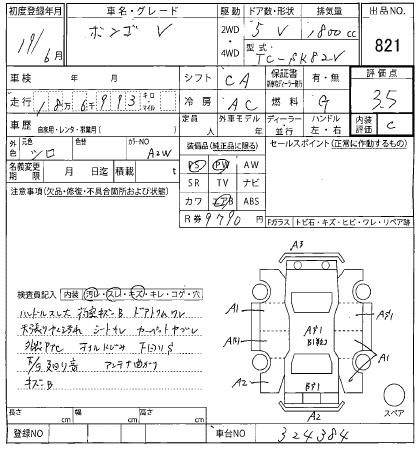 初度登録年月 車名・グレード 駆動 ドア数・形状 排気量 出品NO.
19/ 6月 ボンゴ V 2WD・4WD 5 V 1800cc 821
型式 TC-SK82V
車検 年 月 シフト CA 保証書 有・無 評価点
走行 18万6千993 キロ マイル 冷房 AC 燃料 G 3.5
車歴 自家用・レンタ・事業用( ) 定員 人 外車モデル 年 ディーラー・並行 ハンドル 左・右 内装評価 C
外色 元色 シロ 色替 カラーNO A2W 装備品(純正品に限る) セールスポイント(正常に作動するもの)
名義変更期限 月 日迄 積載 t PS PW AW
注意事項(欠品・修復・不具合箇所および状態) SR TV ナビ
カワ エアB ABS
R券 9790 円
Fガラス トビ石・キズ・ヒビ・ワレ・リペア跡
検査員記入 内装 汚レ・スレ・キズ・キレ・コゲ・穴
ハンドルスレ大 荷室キズB ドアトリムワレ
シートキレ
オイルにじみ 下回りS
アンテナ曲がり
キズB
A3
A1
A2
B91
A2
スペア
長さ cm 幅 cm 高さ cm
登録NO 車台NO 324384